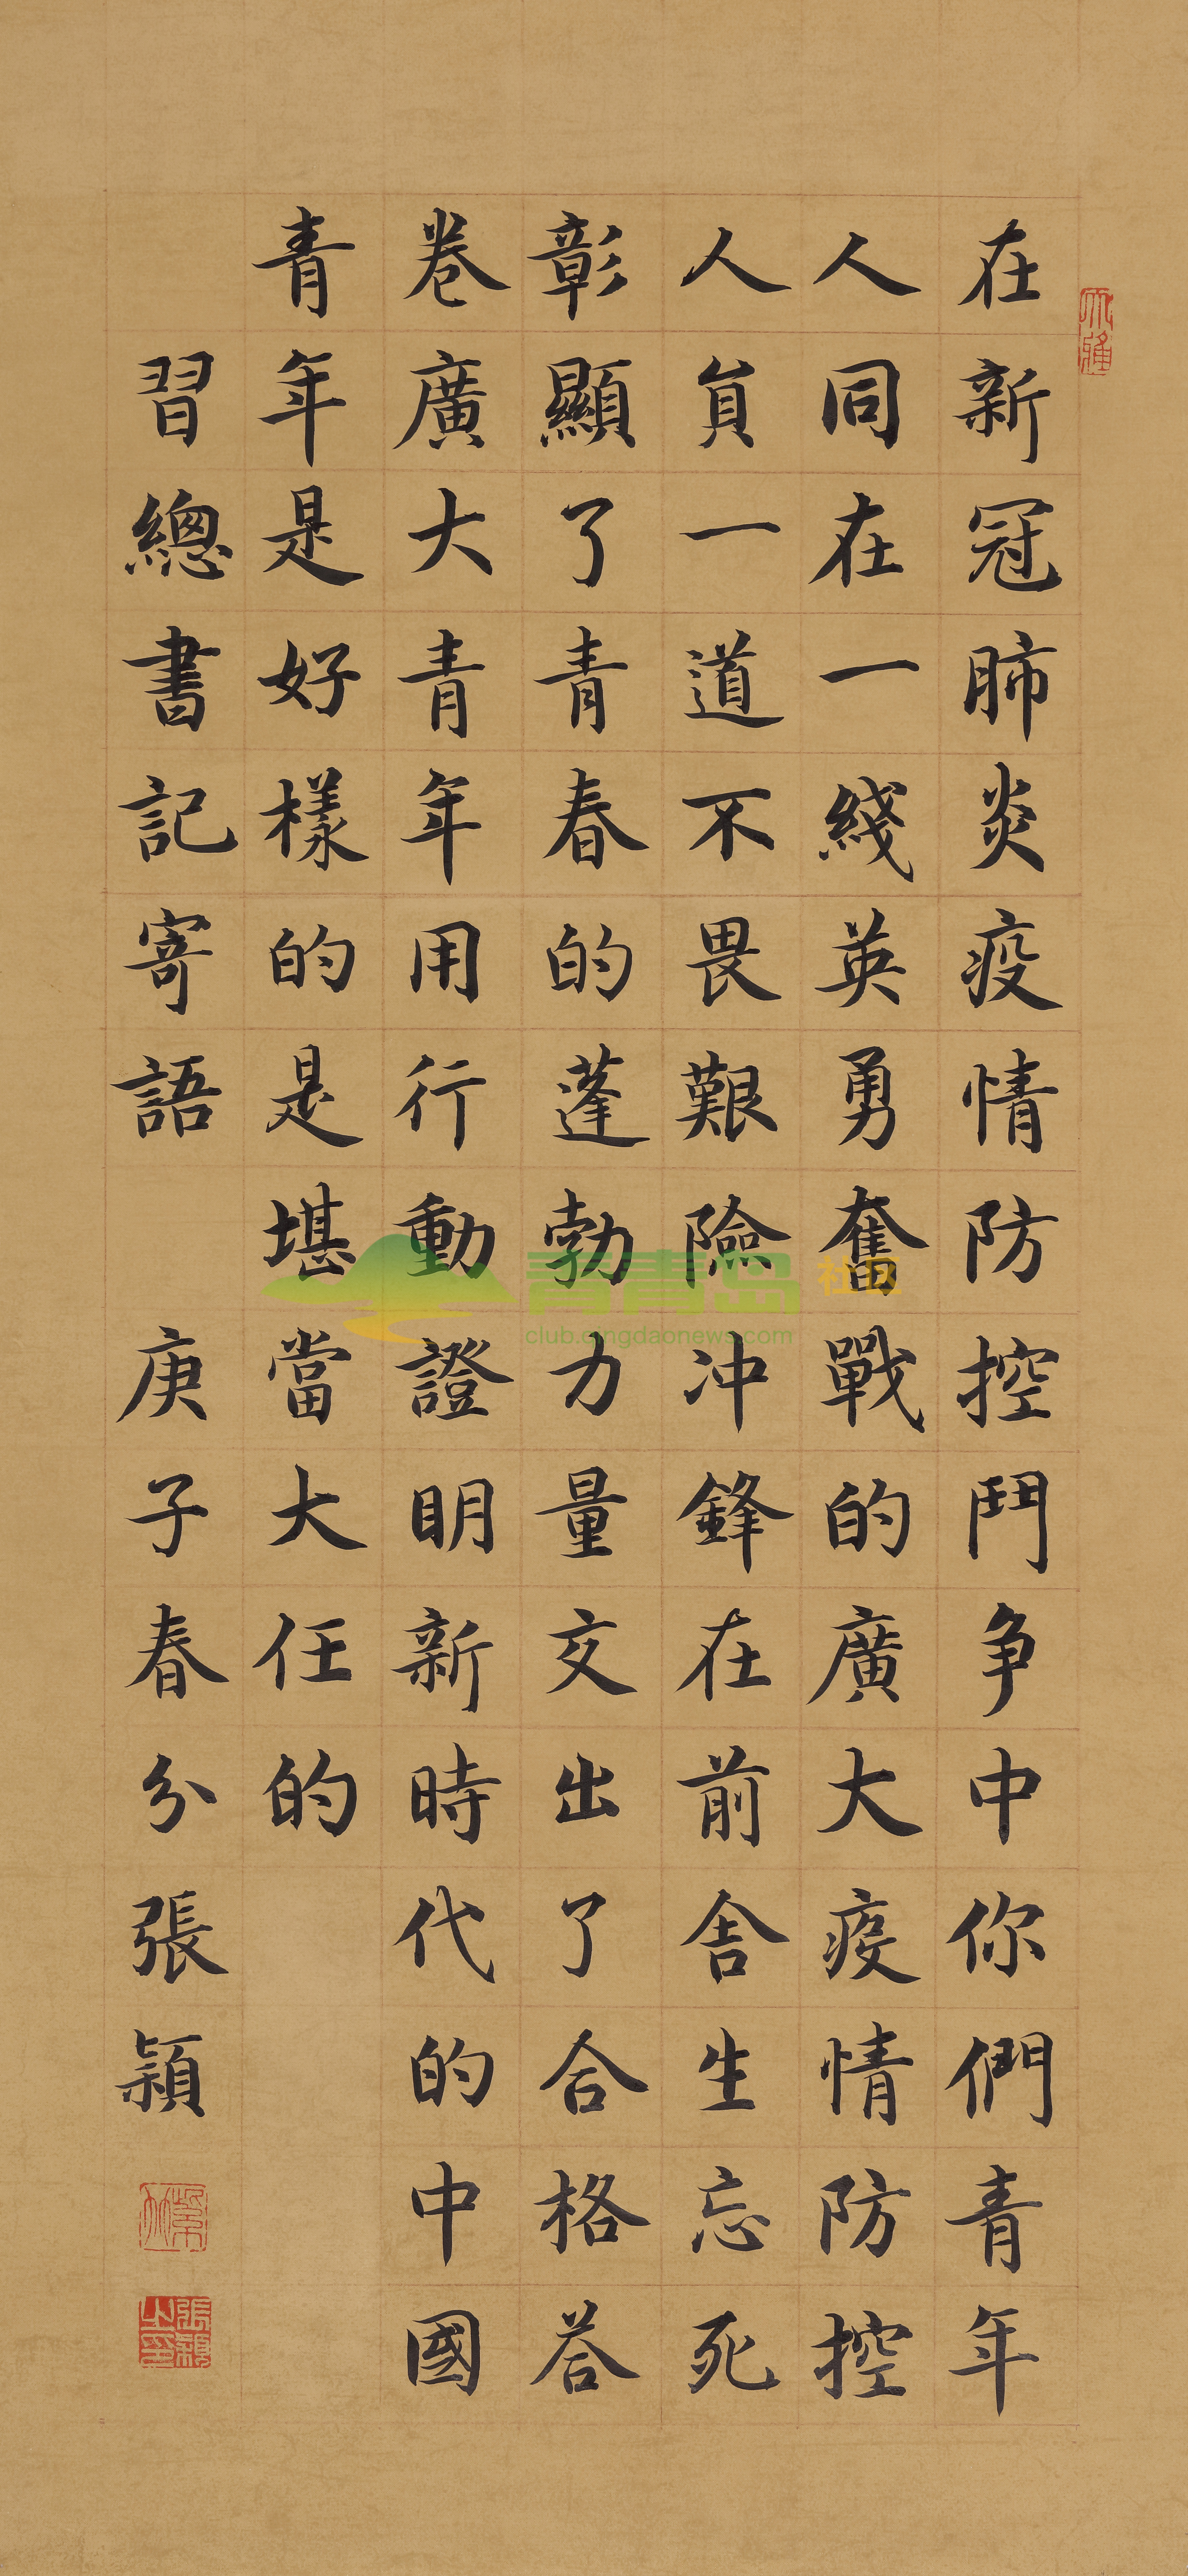 在新冠肺炎疫情防控鬥争中你們青年
人同在一綫英勇奮戰的廣大疫情防控
人員一道不畏艱險冲鋒在前舍生忘死
彰顯了青春的蓬勃力量交出了合格答
卷廣大青年用行動證明新時代的中國
青年是好樣的是堪當大任的
習總書記寄語 庚子春分張穎
張穎之印
青青岛社区
club.qingdaonews.com